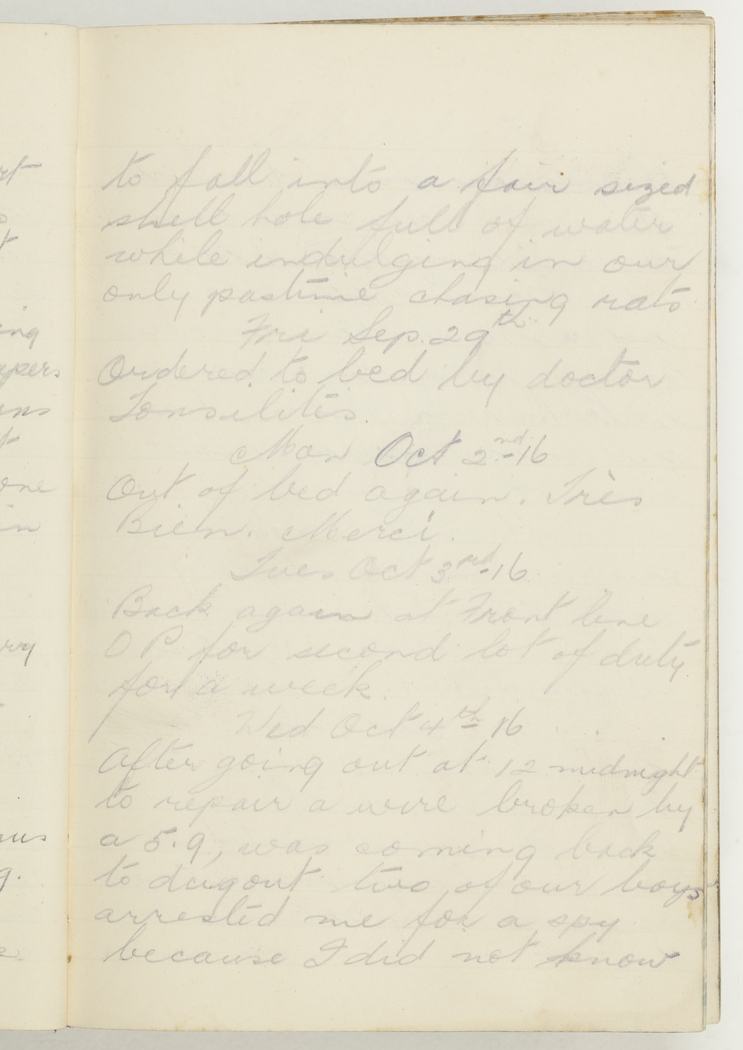 to fall into a fair sized
shell hole full of water
while indulging in our
only pastime, chasing rats
Fri Sep. 29th
Ordered to bed by doctor
Tonsilitis.
Mon Oct 2nd-16
Out of bed again. Très
Bien. Merci.
Tues Oct 3rd-16
Back again at Front line
O P for second lot of duty
for a week
Wed Oct 4th 16
After going out at 12 midnight
to repair a wire broken by
a 5.9, was coming back
to dugout two of our boys
arrested me for a spy
because I did not know